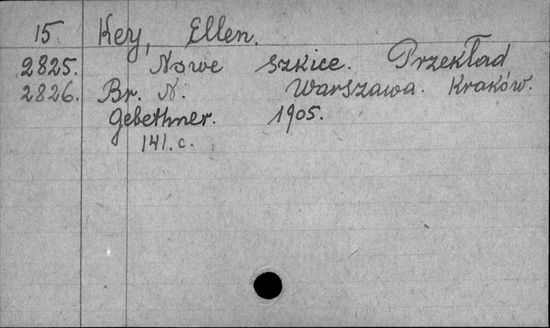 15. Key, Ellen.
2825. Nowe szkice. Przekład
2826. Br. N. Warszawa. Kraków.
Gebethner. 1905.
141. c.